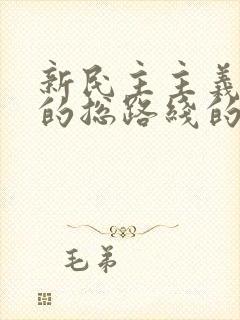 新民主主義
的总路綫的
毛弟